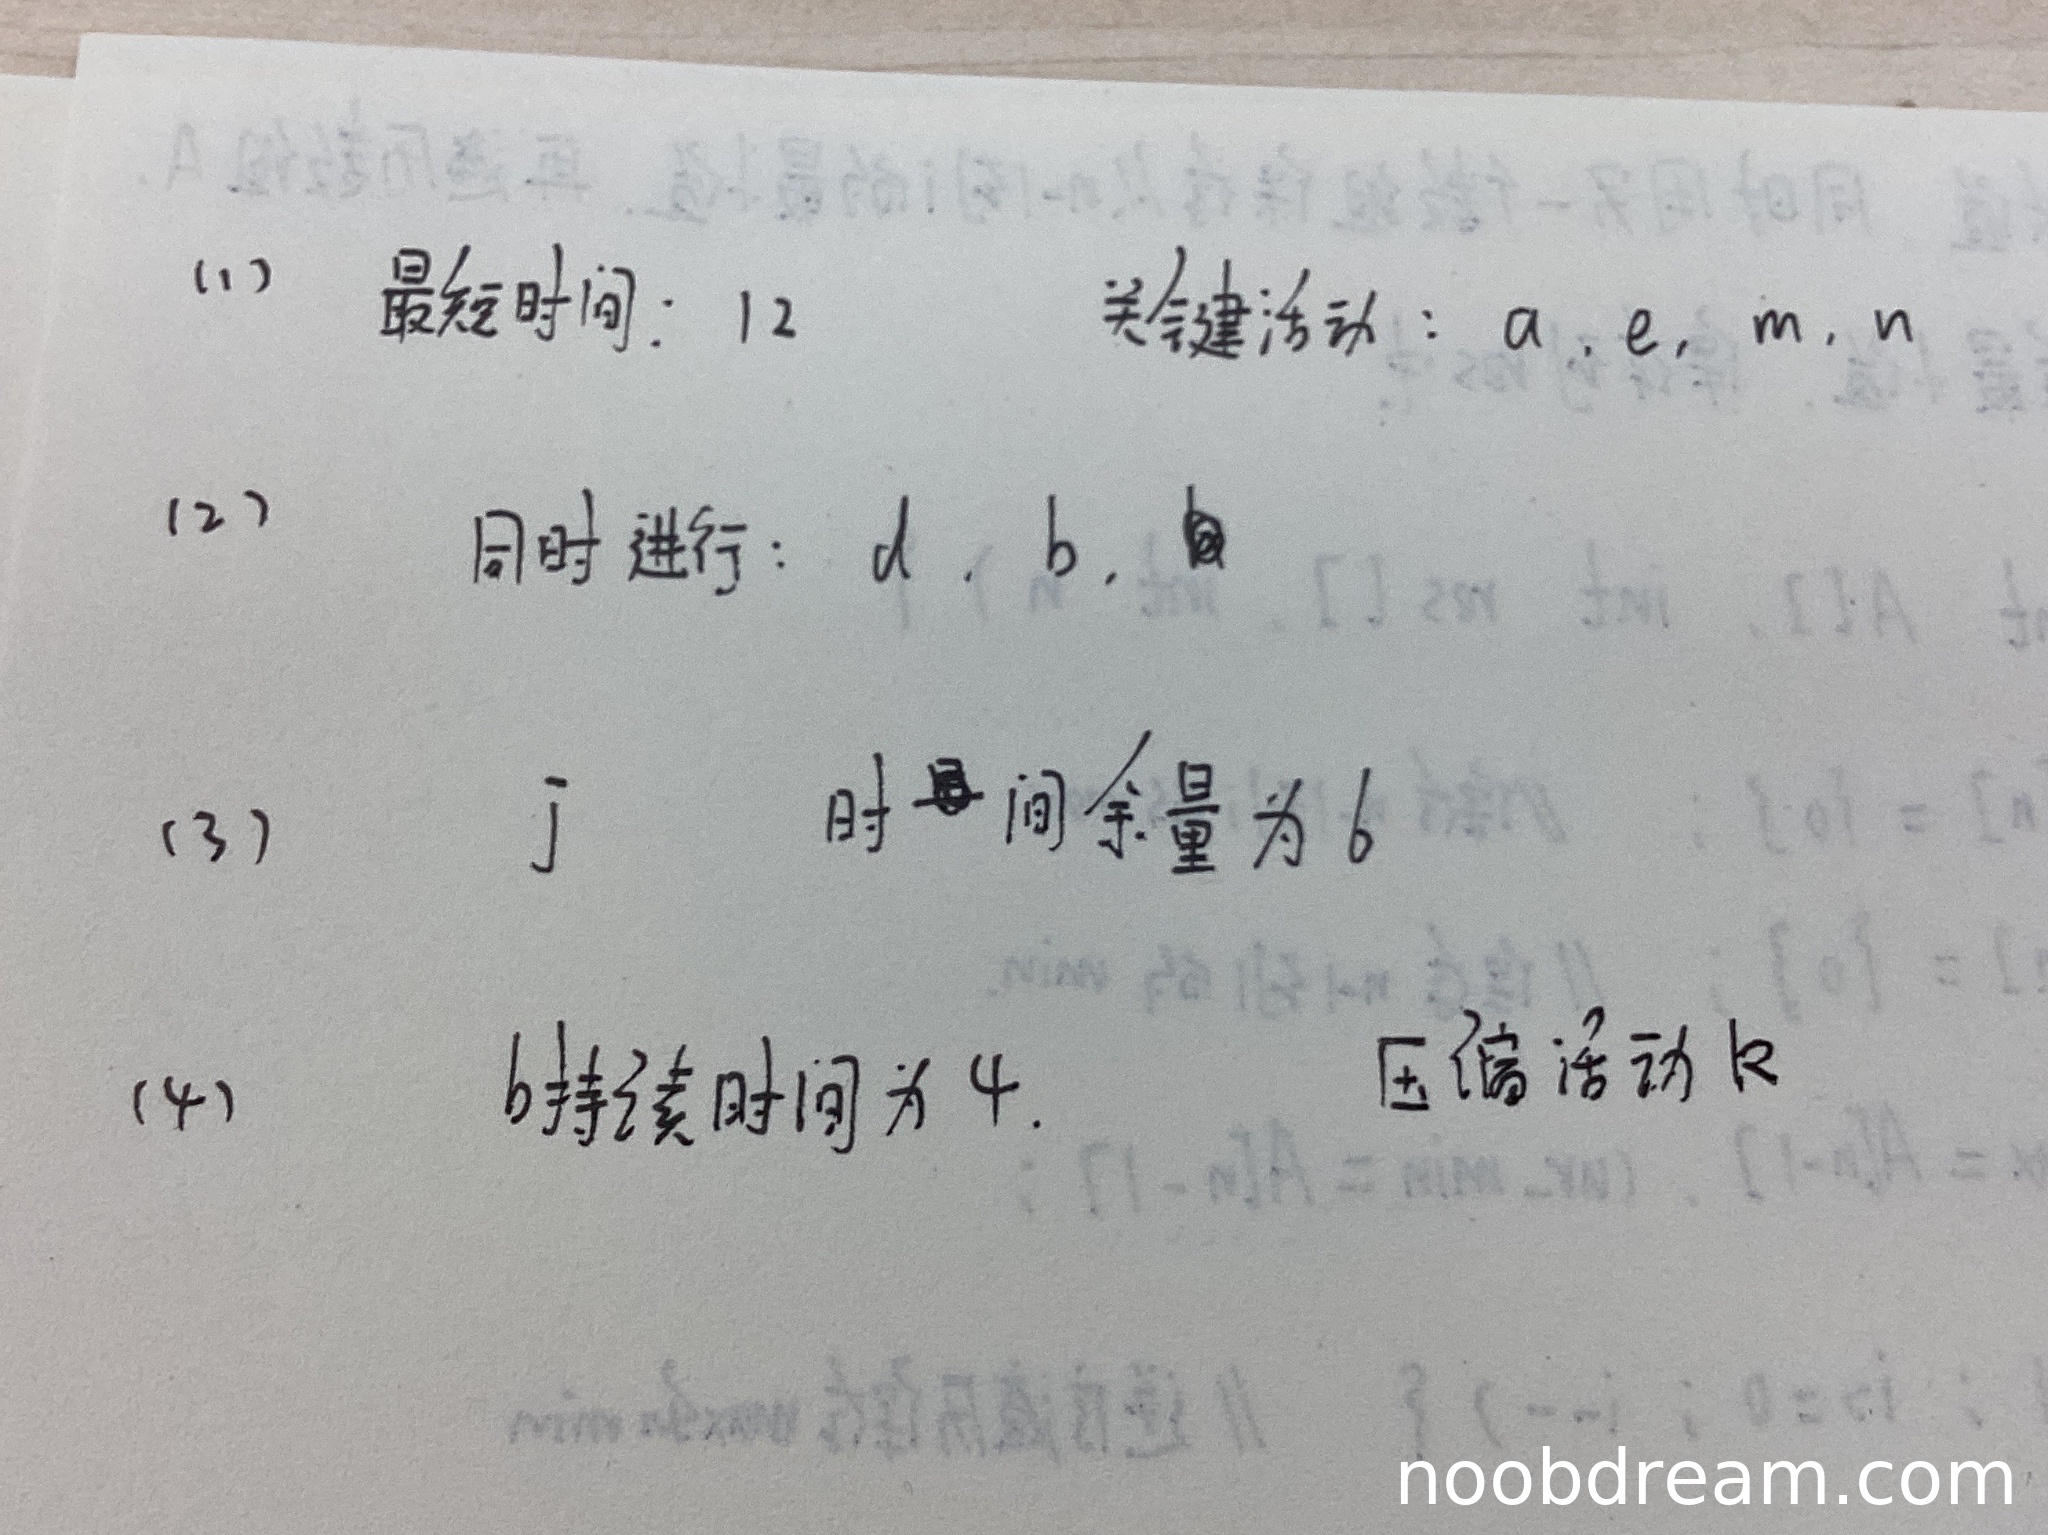 (1) 最短时间: 12 关键活动: a, e, m, n
(2) 同时进行: d, b,
(3) j 时间余量为6
(4) b持续时间为4. 压缩活动k
noobdream.com